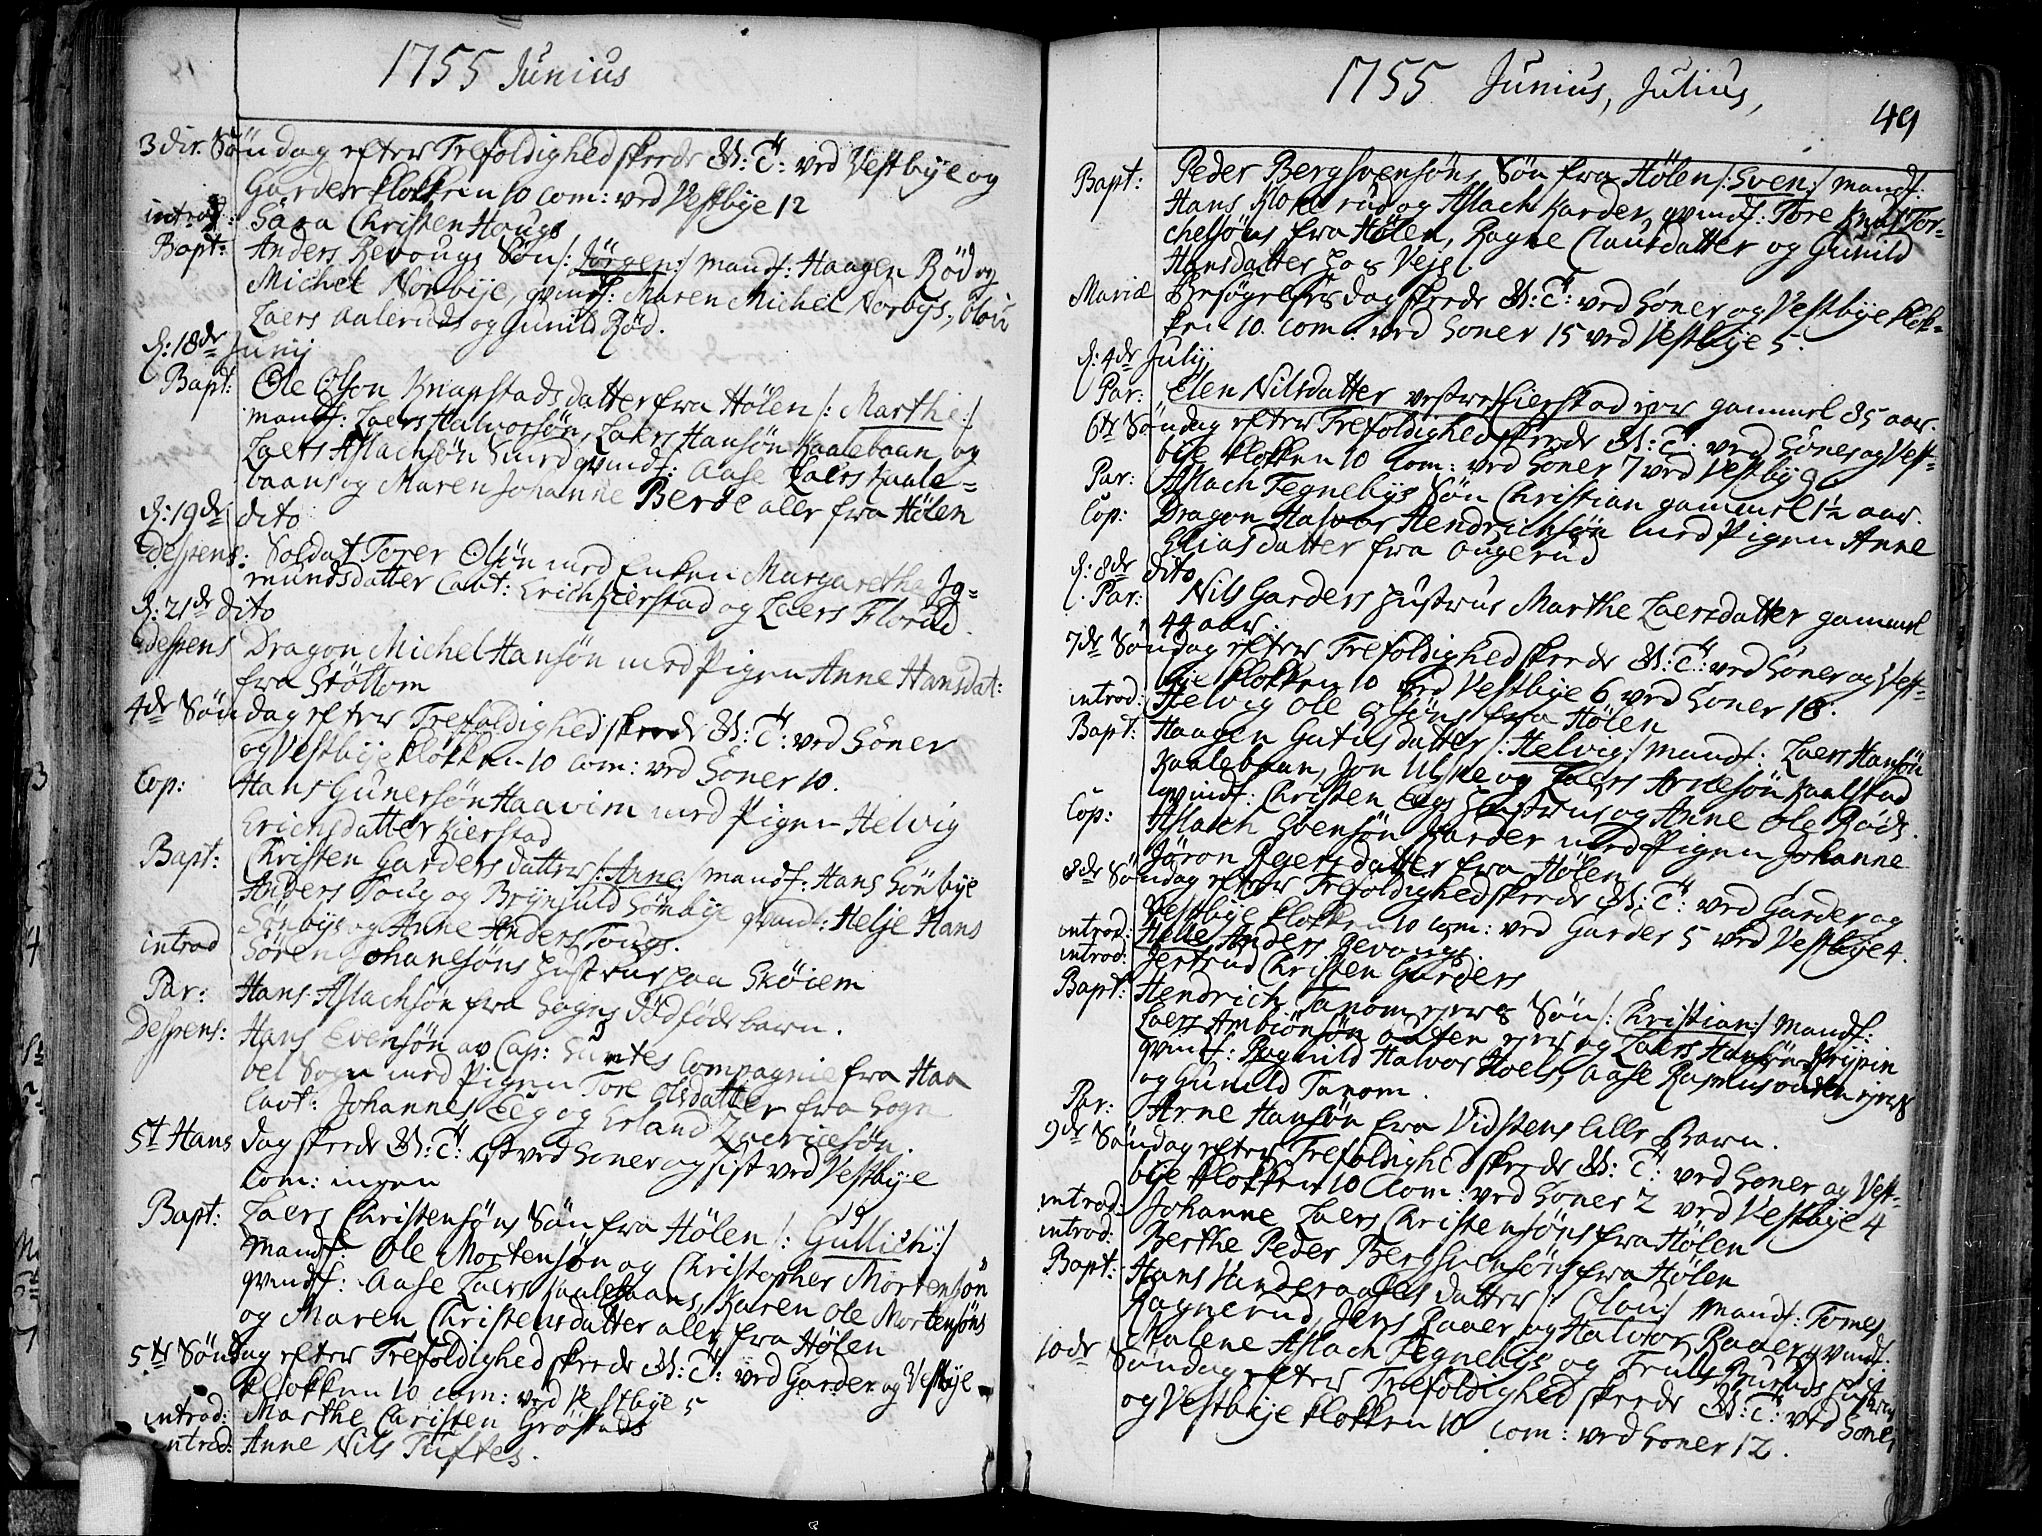 1755 Junius
3die Söndag efter Trefoldighed skeede G: T: ved Vestbye og
Garder klokken 10 com: ved Vestbye 12
introd: Sara Christen Hougs
Bapt: Anders Revougs Søn /: Jörgen :/ mandf: Haagen Röd og
Michel Norbye, qvindf: Maren Michel Norbys, Olou
Laers Aaleruds og Gunild Röd.
d: 18de Junij
Bapt: Ole Olson Knapstads datter fra Hölen /: Marthe :/
mandf: Laers Halvorsön, Laers Hansön Kaalebaan og
Laers Aslachsön Smed qvindf: Aase Laers Kaale=
baans og Maren Johanne Berde alle fra Hölen
d: 19de dito
despens: Soldat Torer Olsön med Enken Margaretha Jg=
mundsdatter Caut: Erich Kierstad og Laers Florud.
d: 21de dito
despens Dragon Michel Hansön med Pigen Anne Hansdat:
fra Stöttom
4de Söndag efter Trefoldighed skeede G: T: ved Soner
og Vestbye klokken 10 com: ved Soner 10.
Cop: Hans Gunersön Haavim med Pigen Helvig
Erichsdatter Kierstad
Bapt: Christen Garders datter /: Anne :/ mandf: Hans Sönbye
Anders Toug og Brynjuld Sönbye qvindf: Helje Hans
Sönbys og Anne Anders Tougs.
introd Sören Johansöns Hustrue paa Sköiem
Par: Hans Aslachsön fra Sogns dödföde barn.
Despens: Hans Evensön av Cap: Suntes Compagnie fra Haa
bel Sogn med Pigen Tore Olsdatter fra Sogn
Caut: Johannes Eeg og Erland Zacriesön.
St Hans dag skeede G: T: först ved Soner og sist ved Vestbye
Com: ingen
Bapt: Laers Christensöns Sön fra Hölen /: Gullich :/
mandf: Ole Mortensön og Christopher Mortensön
qvindf: Aase Laers Kaalebaans, Karen Ole Mortensöns
og Maren Christensdatter alle fra Hölen
5te Söndag efter Trefoldighed skeede G: T: ved Garder og Vestbye
klokken 10 com: ved Vestbye 5
introd: Marthe Christen Gröstads
introd: Anne Nils Tuftes.
1755 Junius, Julius,
49
Bapt: Peder Bergsvensöns Sön fra Hölen /: Sven :/ mandf:
Hans Klokkerud og Aslach Karder, qvindf: Tore Knut Tor=
chelsöns fra Hölen, Ragne Clausdatter og Gunild
Hansdatter hos Vejs
Mariæ Besögelses dag skeede G: T: ved Soner og Vestbye klok=
ken 10. com: ved Soner 15 ved Vestbye 5.
d: 4de Julij
Par: Elen Nilsdatter vestre Kierstad ejer gammel 85 aar.
6te Söndag efter Trefoldighed skeede G: T: ved Soner og Vest=
bye klokken 10 Com: ved Soner 7 ved Vestbye 9
Par: Aslach Tegnebys Sön Christian gammel 1½ aar.
Cop: Dragon Halvor Hendrichsön med Pigen Anne
Eliasdatter fra Ougerud
d: 8de dito
Par: Nils Garders Hustrue Marthe Laersdatter gammel
44 aar.
7de Söndag efter Trefoldighed skeede G: T: ved Soner og Vest=
bye klokken 10 ved Vestbye 6 ved Soner 18.
introd: Helvig Ole Olsöns fra Hölen
Bapt: Haagen Gutus datter /: Helvig :/ mandf: Laers Hansön
Kaalebaan, Jon Ulske og Laers Arnesön Kaalstad
qvindf: Christen Eegs Hustrue og Anne Ole Röds.
Cop: Aslach Svensön Karder med Pigen Johanne
Jöron Reersdatter fra Hölen
8de Söndag efter Trefoldighed skeede G: T: ved Garder og
Vestbye klokken 10 com: ved Garder 5 ved Vestbye 4.
introd: Helle Anders Revougs
introd: Jertrud Christen Garders
Bapt: Hendrich Tanom ejers Sön /: Christian :/ mandf:
Laers Ambiönsön ejer og Laers Hansön Krypin
qvindf: Ragnild Halvor Hoels, Aase Rasmus ejers
og Gunild Tanom.
Par: Arne Hansön fra Vidstens lille Barn.
9de Söndag efter Trefoldighed skeede G: T: ved Soner og Vest=
bye klokken 10 Com: ved Soner 2 ved Vestbye 4
introd: Johanne Laers Christensöns fra Hölen
introd: Berthe Peder Bergsvensöns fra Hölen
Bapt: Hans Vanderaases datter /: Olou :/ mandf: Tomes
Ragnerud, Jens Raaer og Halvor Raaer, qvindf:
Malene Aslach Tegnebys og Truls Buruds Hustrue
10de Söndag efter Trefoldighed skeede G: T: ved Soner
og Vestbye klokken 10 com: ved Soner 12.